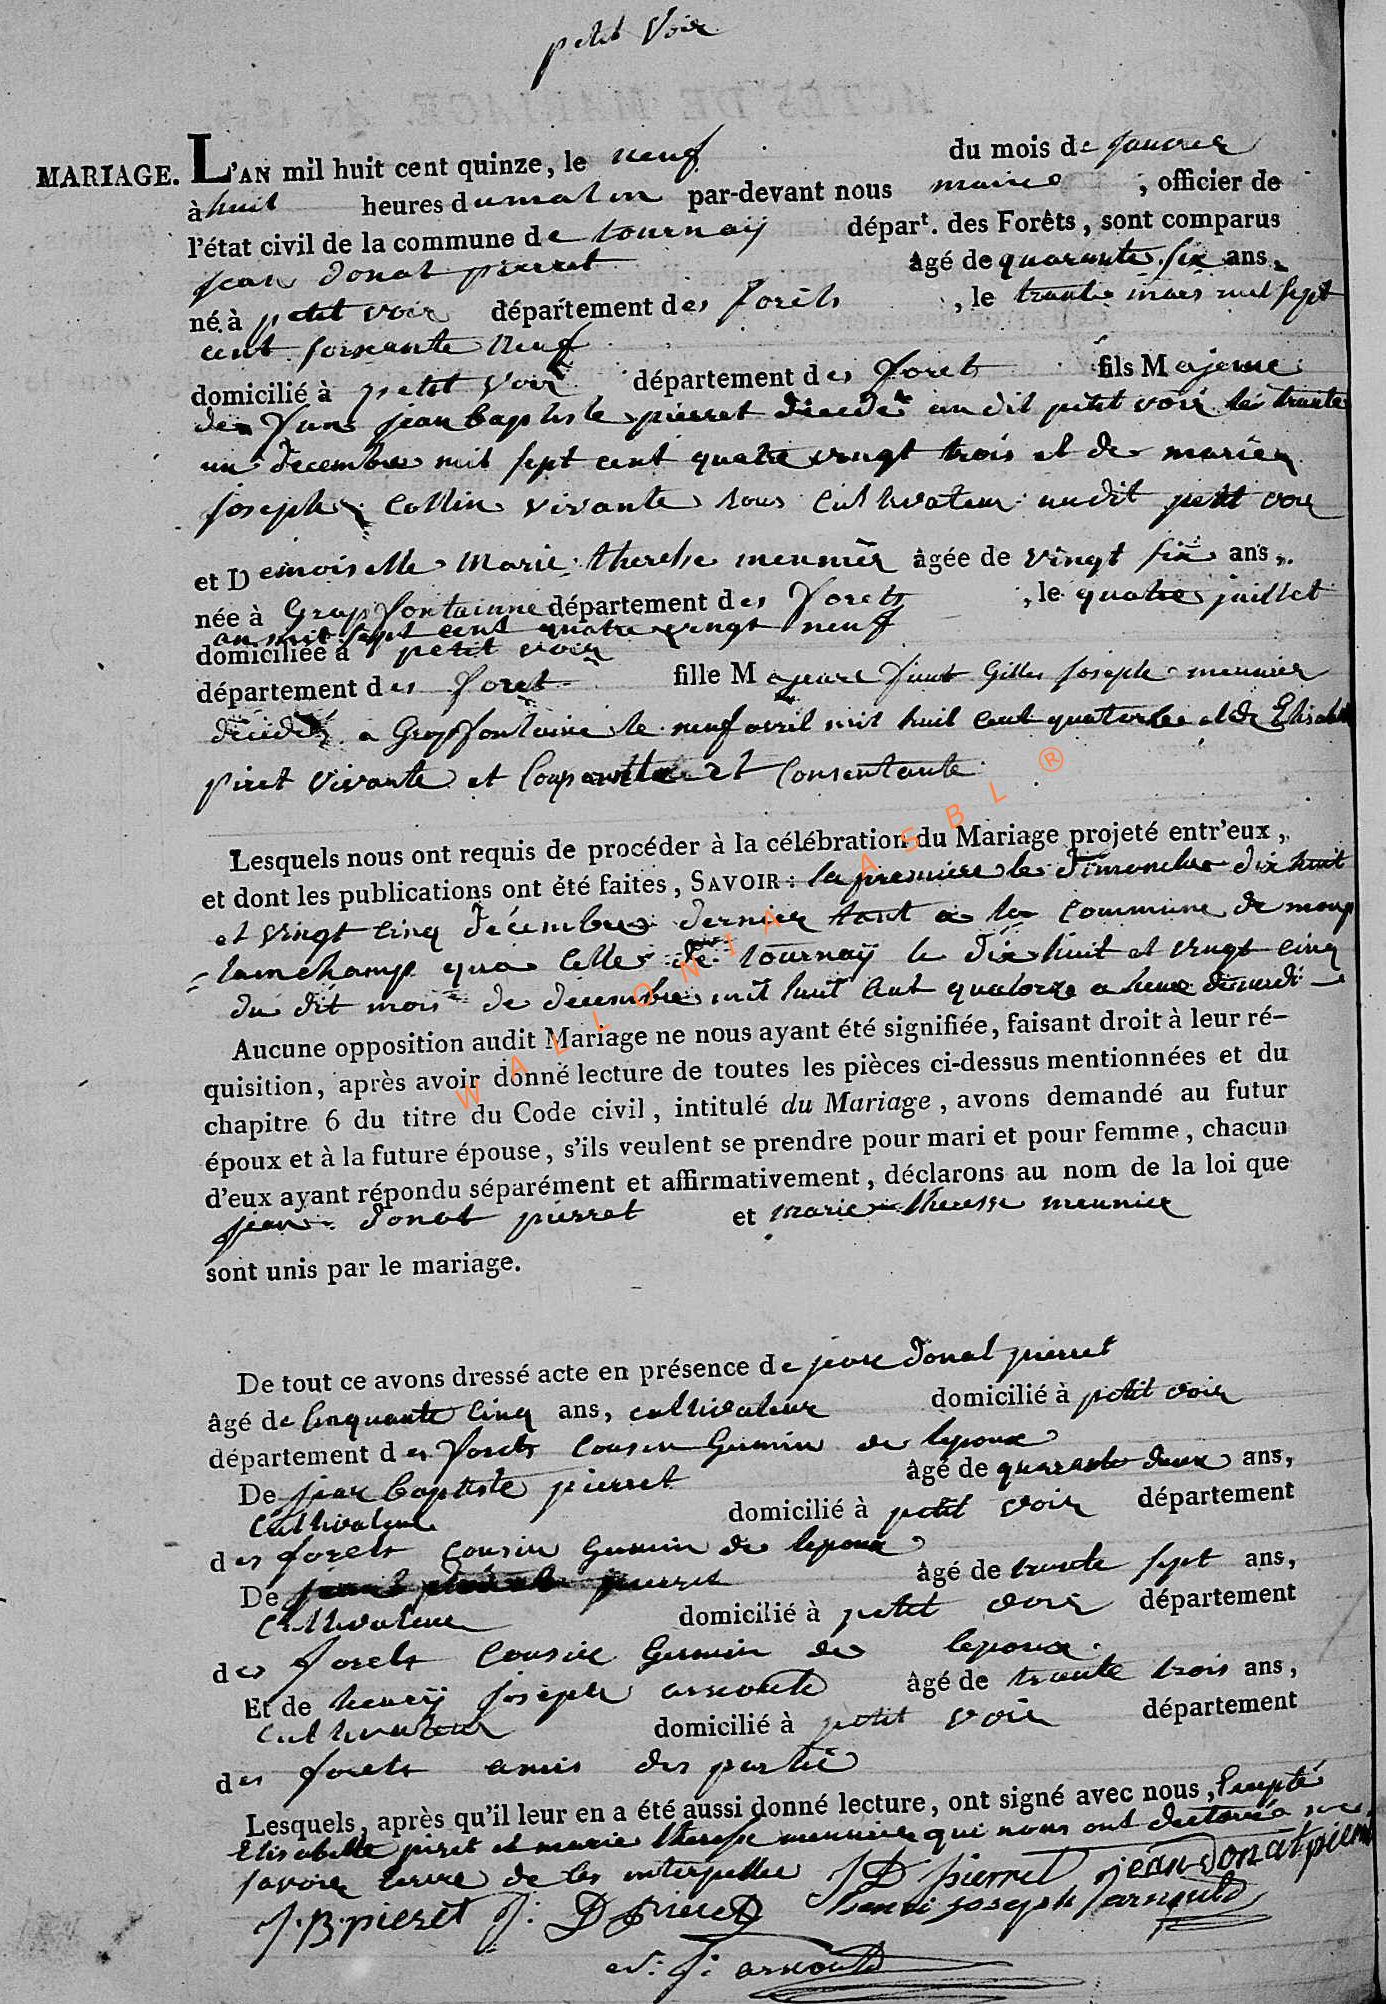 petit Voir
MARIAGE. L'AN mil huit cent quinze, le neuf du mois de janvier
à huit heures du matin par-devant nous maire , officier de
l'état civil de la commune de tournaij départ. des Forêts, sont comparus
jean donat pierret âgé de quarante six ans,
né à petit voir département des forêts , le trente mars mil sept
cent soixante neuf
domicilié à petit voir département des foret fils Majeure
de jean baptiste pierret décédé audit petit voir le trente
un decembre mil sept cent quatre vingt trois et de marie
joseph Collin vivante cultivateur audit petit voir
et Demoiselle Marie therese meunier âgée de vingt six ans,
née à Grapfontainne département des Forets , le quatre juillet
an mil sept cent quatre vingt neuf
domiciliée à petit voir
département des foret fille Majeure Gilles joseph meunier
décédé a Grapfontaine le neuf avril mil huit cent quatorze et de Elisabet
piret vivante et et Consentante
Lesquels nous ont requis de procéder à la célébration du Mariage projeté entr'eux,
et dont les publications ont été faites, SAVOIR : la premiere le dimanche dix huit
et vingt cinq décembre dernier tant a la commune de
lamchamp qua celle de tournaij le dix huit et vingt cinq
du dit mois de decembre mil huit cent quatorze a heure
Aucune opposition audit Mariage ne nous ayant été signifiée, faisant droit à leur ré-
quisition, après avoir donné lecture de toutes les pièces ci-dessus mentionnées et du
chapitre 6 du titre du Code civil, intitulé du Mariage, avons demandé au futur
époux et à la future épouse, s'ils veulent se prendre pour mari et pour femme, chacun
d'eux ayant répondu séparément et affirmativement, déclarons au nom de la loi que
jean donat pierret et marie theresse meunier
sont unis par le mariage.
De tout ce avons dressé acte en présence de jean donat pierret
âgé de Cinquante Cinq ans, cultivateur domicilié à petit voir
département des Forets Cousin Germin de lepoux
De jean baptiste pierret âgé de quarante deux ans,
Cultivateur domicilié à petit voir département
des forets cousin Germin de lepoux
De pierret âgé de trente sept ans,
Cultivateur domicilié à petit voir département
des forets Cousin Germin de lepoux
Et de henrij joseph arnould âgé de trente trois ans,
Cultivateur domicilié à petit voir département
des forets amis des partie
Lesquels, après qu'il leur en a été aussi donné lecture, ont signé avec nous, Excepté
Elisabette piret et marie therese meunier qui nous ont declaré ne
savoir de les interpeller JD pierret jean Donat pierret
J.B. pieret J: D pieret henri joseph arnould
J: arnould
WALLONIA ASBL ®